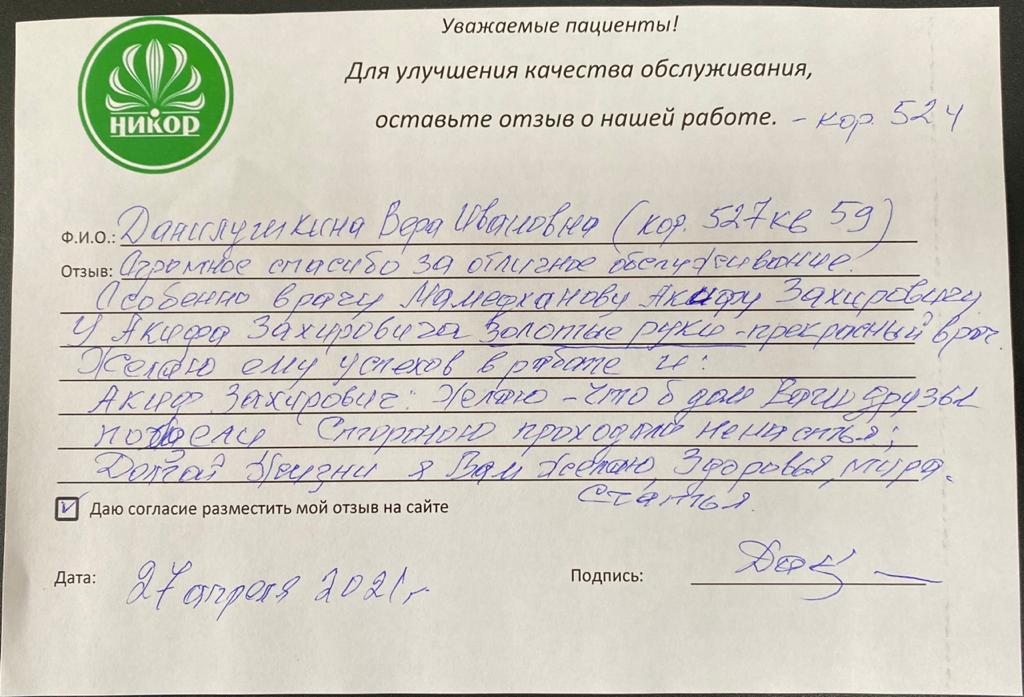 Уважаемые пациенты!
Для улучшения качества обслуживания,
оставьте отзыв о нашей работе. - кор. 524
НИКОР
Ф.И.О.: Данилушкина Вера Ивановна (кор. 527 кв 59)
Отзыв: Огромное спасибо за отличное обслуживание.
Особенно врачу Мамедханову Акифу Захировичу
У Акифа Захировича золотые руки - прекрасный врач.
Желаю ему успехов в работе и:
Акиф Захирович: Желаю - чтоб дом Ваш друзья
Стороною проходили ненастья;
Долгой жизни я Вам желаю, Здоровья, мира,
счастья.
Даю согласие разместить мой отзыв на сайте
Дата: 27 апреля 2021г. Подпись: